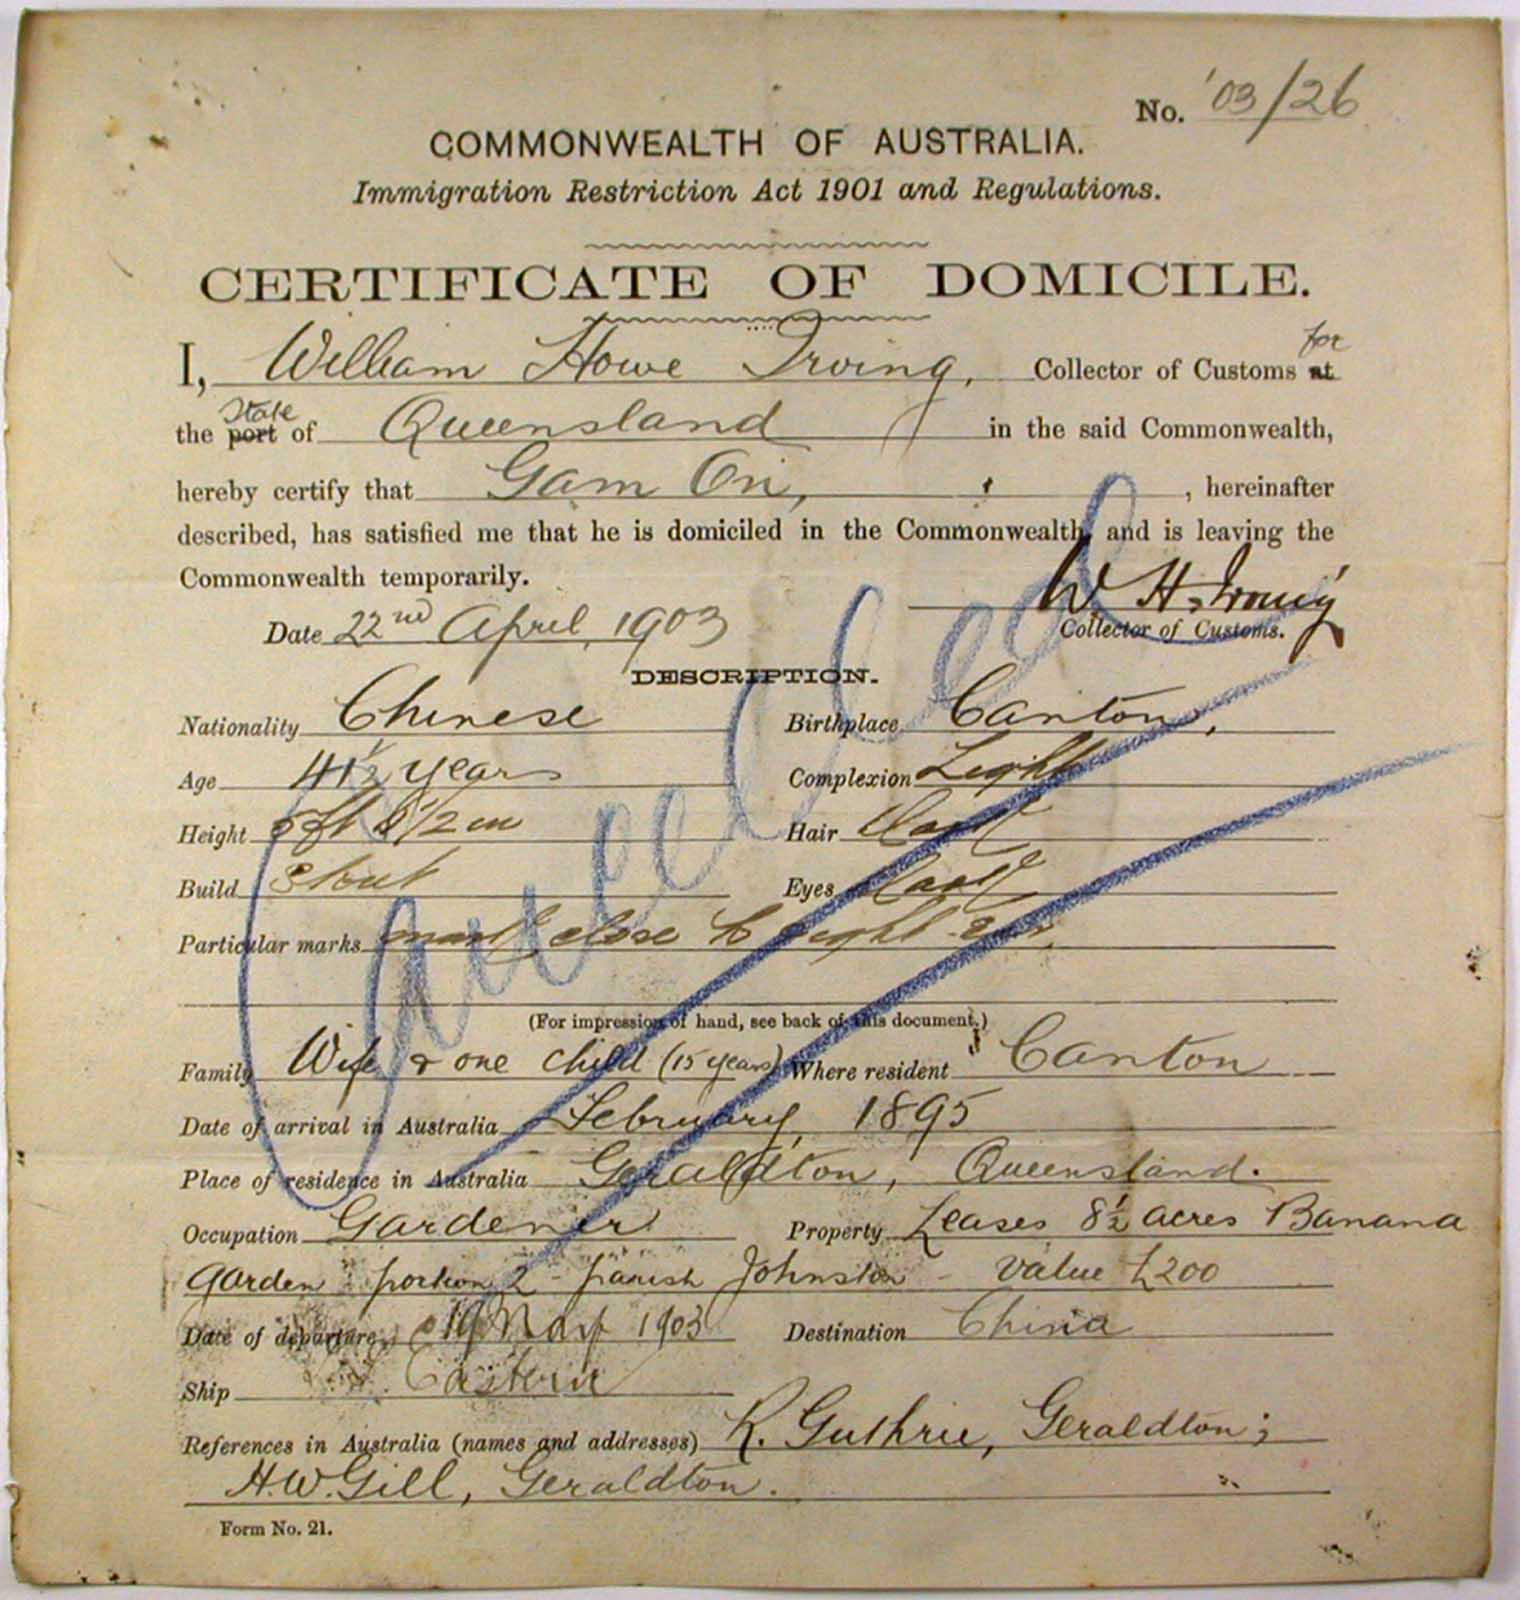 No. '03/26
COMMONWEALTH OF AUSTRALIA.
Immigration Restriction Act 1901 and Regulations.
CERTIFICATE OF DOMICILE.
I, William Howe Irving, Collector of Customs at for
the port State of Queensland in the said Commonwealth,
hereby certify that Gam On, , hereinafter
described, has satisfied me that he is domiciled in the Commonwealth, and is leaving the
Commonwealth temporarily.
W. H. Irving
Date 22nd April, 1903 Collector of Customs.
DESCRIPTION.
Nationality Chinese Birthplace Canton,
Age 41½ years Complexion Light
Height 5ft 8½ in Hair Dark
Build Stout Eyes Dark
Particular marks mark close to right
Cancelled
(For impression of hand, see back of this document.)
Family Wife & one child (15 years) Where resident Canton
Date of arrival in Australia February, 1895
Place of residence in Australia Geraldton, Queensland.
Occupation Gardener Property Leases 8½ acres Banana
Garden portion 2 - parish Johnston - value £200
Date of departure 19 May 1903 Destination China
Ship Eastern
References in Australia (names and addresses) R. Guthrie, Geraldton;
H.W. Gill, Geraldton.
Form No. 21.